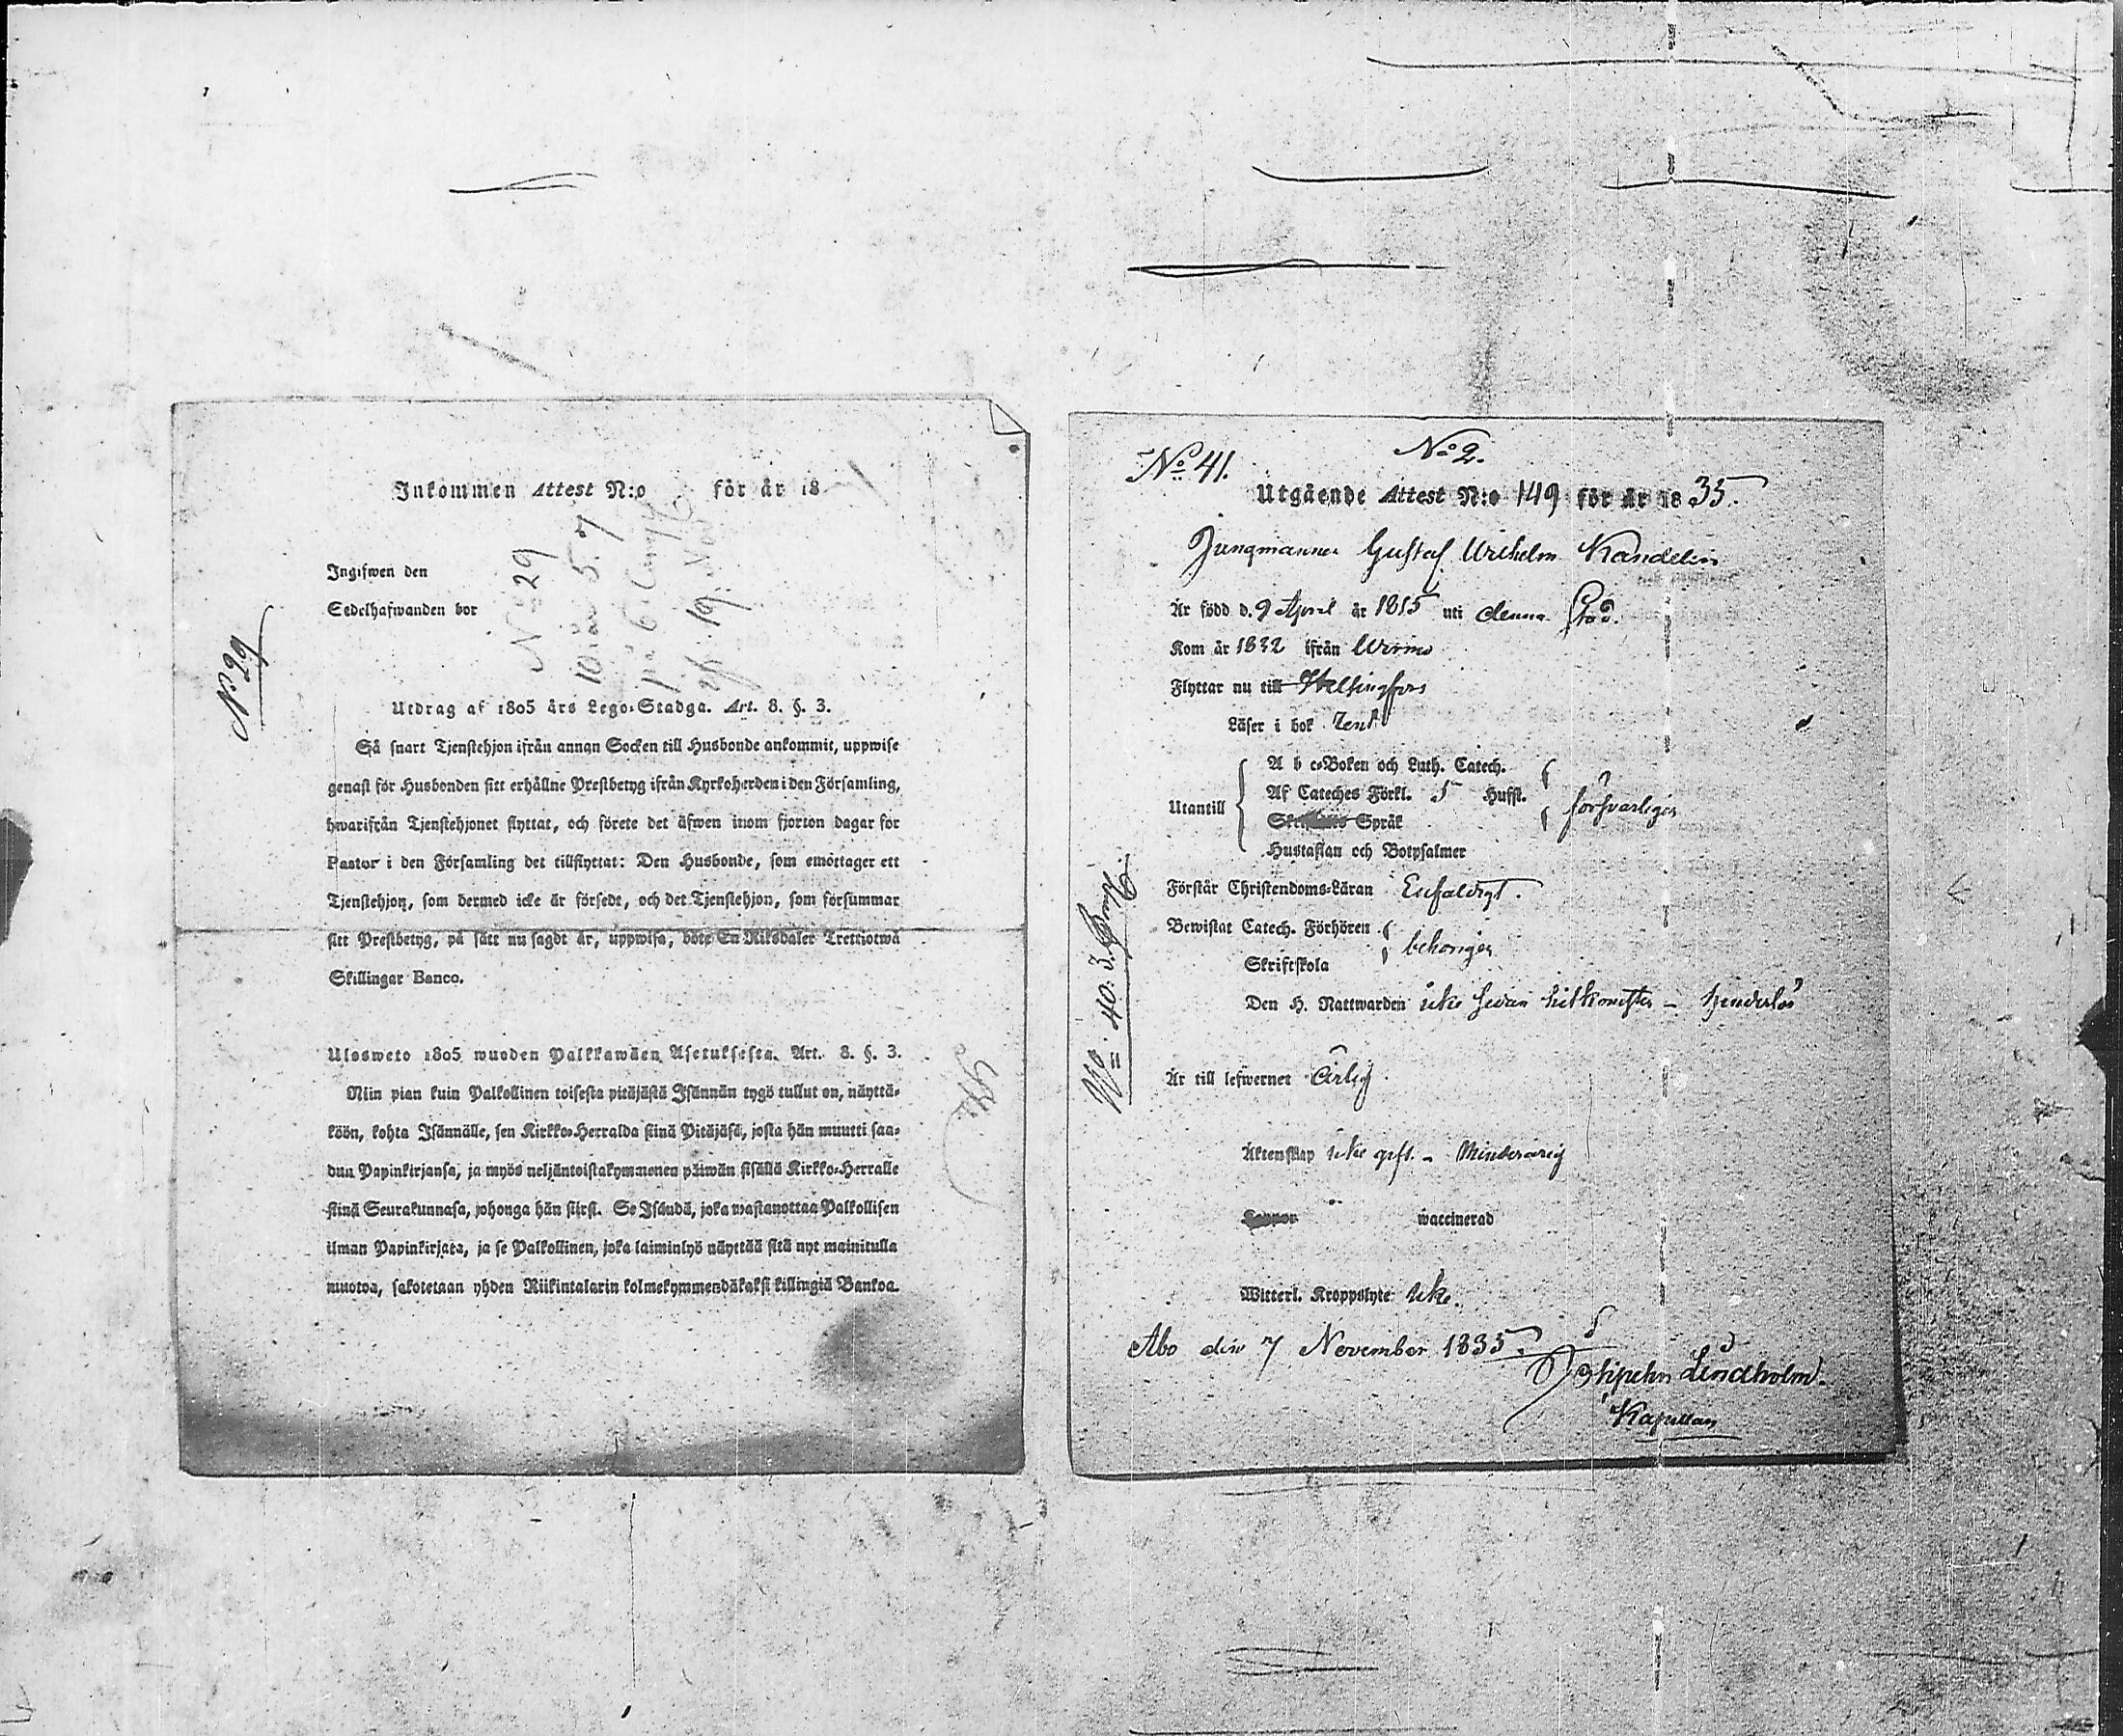 Inkommen Attest N:o för år 18
Ingifwen den
Sedelhafwanden bor
No 29
No 29
Utdrag af 1805 års Lego-Stadga. Art. 8. §. 3.
Så snart Tjenstehjon ifrån annan Socken till Husbonde ankommit, uppwise
genast för Husbonden sitt erhållne Prestbetyg ifrån Kyrkoherden i den Församling,
hwarifrån Tjenstehjonet flyttat, och förete det äfwen inom fjorton dagar för
Pastor i den Församling det tillflyttat: Den Husbonde, som emottager ett
Tjenstehjon, som dermed icke är försedt, och det Tjenstehjon, som försummar
sitt Prestbetyg, på sätt nu sagdt är, uppwisa, böte En Riksdaler Trettiotwå
Skillingar Banco.
Ulosweto 1805 wuoden Palkkawäen Asetuksesta. Art. 8. §. 3.
Niin pian kuin Palkollinen toisesta pitäjästä Isännän tygö tullut on, näyttä-
köön, kohta Isännälle, sen Kirkko-Herralda siinä Pitäjäsä, josta hän muutti saa-
dun Papinkirjansa, ja myös neljäntoistakymmenen päiwän sisällä Kirkko-Herralle
siinä Seurakunnasa, johonga hän siirsi. Se Isändä, joka wastanottaa Palkollisen
ilman Papinkirjata, ja se Palkollinen, joka laiminlyö näyttää sitä nyt mainitulla
muotoa, sakotetaan yhden Riikintalarin kolmekymmendäkaksi killingiä Bankoa.
No 41.
No 2.
Utgående Attest N:o 149 för år 1835.
Jungmannen Gustaf Wilhelm Kandelin
Är född d. 9 April år 1815 uti denna Stad.
Kom år 1832 ifrån Wirmo
Flyttar nu till Helsingfors
Läser i bok rent
A b c-Boken och Luth. Catech.
Utantill Af Cateches Förkl. 5 Hufst. försvarligen
Språk
Hustaflan och Botpsalmer
Förstår Christendoms-Läran Enfaldigt.
Bewistat Catech. Förhören behörigen
Skriftskola
Den H. Nattwarden icke sedan hitkomsten - hinderlös
Är till lefwernet ärlig
Äktenskap icke gift. - Minderårig
waccinerad
Witterl. Kroppslyte icke.
No 40. 3.
Åbo den 7 November 1835.
Lindholm.
Kapellan